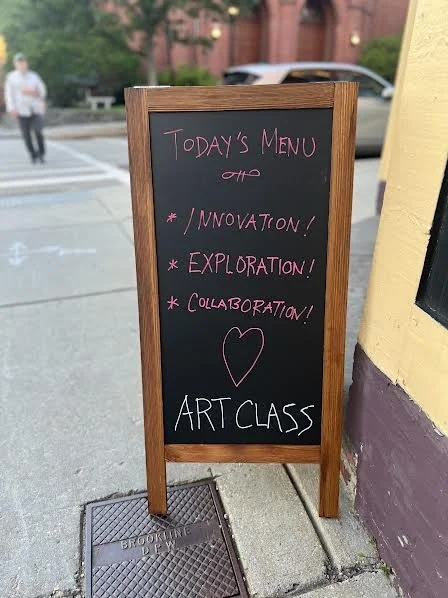 TODAY'S MENU
* INNOVATION!
* EXPLORATION!
* COLLABORATION!
ART CLASS
BROOKLINE
DPW